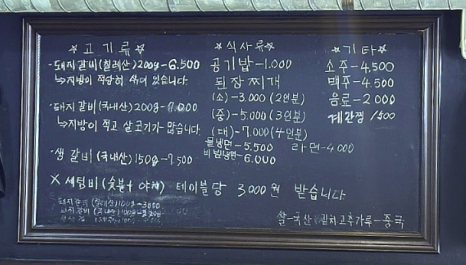 ☆고기류☆
-돼지갈비(칠레산)200g-6,500
↳지방이 적당히 섞여 있습니다.
-돼지갈비(국내산)200g-
↳지방이 적고 살코기가 많습니다.
-생갈비(국내산)150g-7,500
☆식사류☆
공기밥-1,000
된장찌개
(소)-3,000(2인분)
(중)-5,000(3인분)
(대)-7,000(4인분)
물냉면-5,500
비빔냉면-6,000
라면-4,000
☆기타☆
소주-4,500
맥주-4,500
음료-2,000
계란찜
X 세팅비(숯불+야채) 테이블당 3,000원 받습니다
쌀-국산 김치고추가루-중국